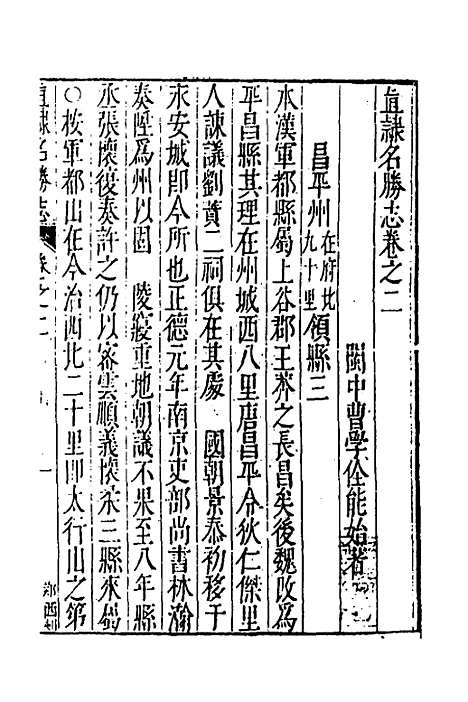 直隸名勝志卷之二
閩中曹學佺能始著
昌平州在府北九十里領縣三
本漢軍都縣屬上谷郡王莽之長昌矣後魏改為
平昌縣其理在州城西八里唐昌平令狄仁傑里
人諫議劉蕡二祠俱在其處 國朝景泰初移于
永安城即今所也正德元年南京吏部尚書林瀚
奏陞為州以固 陵寢重地朝議不果至八年縣
丞張懷復奏許之仍以密雲順義懷柔三縣來屬
○按軍都山在今治西北二十里即太行山之第
直隸名勝志 卷之二 一